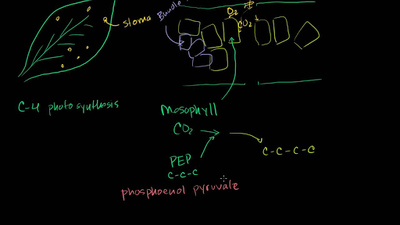 stoma
Bundle
O2
CO2
C-4 photosynthesis
Mesophyll
CO2
PEP
C-C-C
C-C-C-C
phosphoenol pyruvate